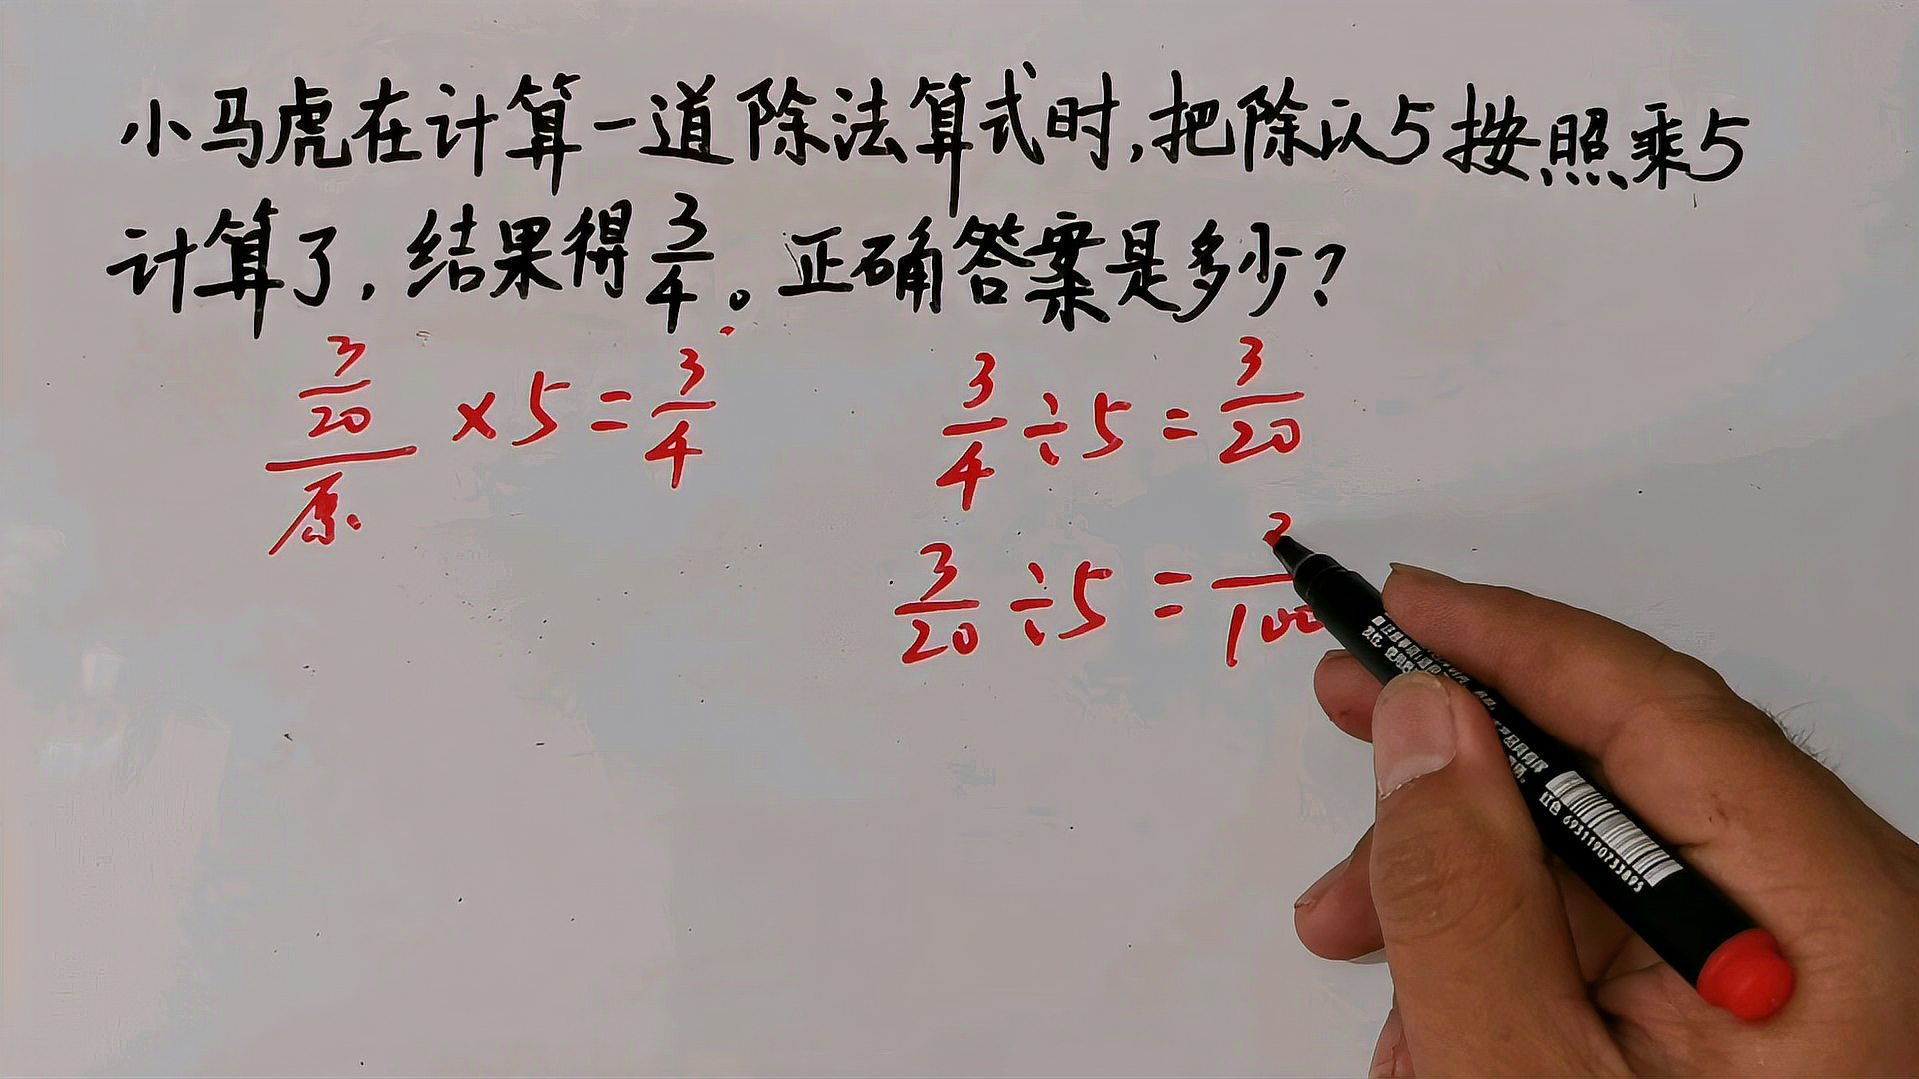 小马虎在计算一道除法算式时,把除以5按照乘5
计算了,结果得3/4。正确答案是多少?
3/20 ×5=3/4
原
3/4÷5=3/20
3/20÷5=3/100
红色 6931190733895